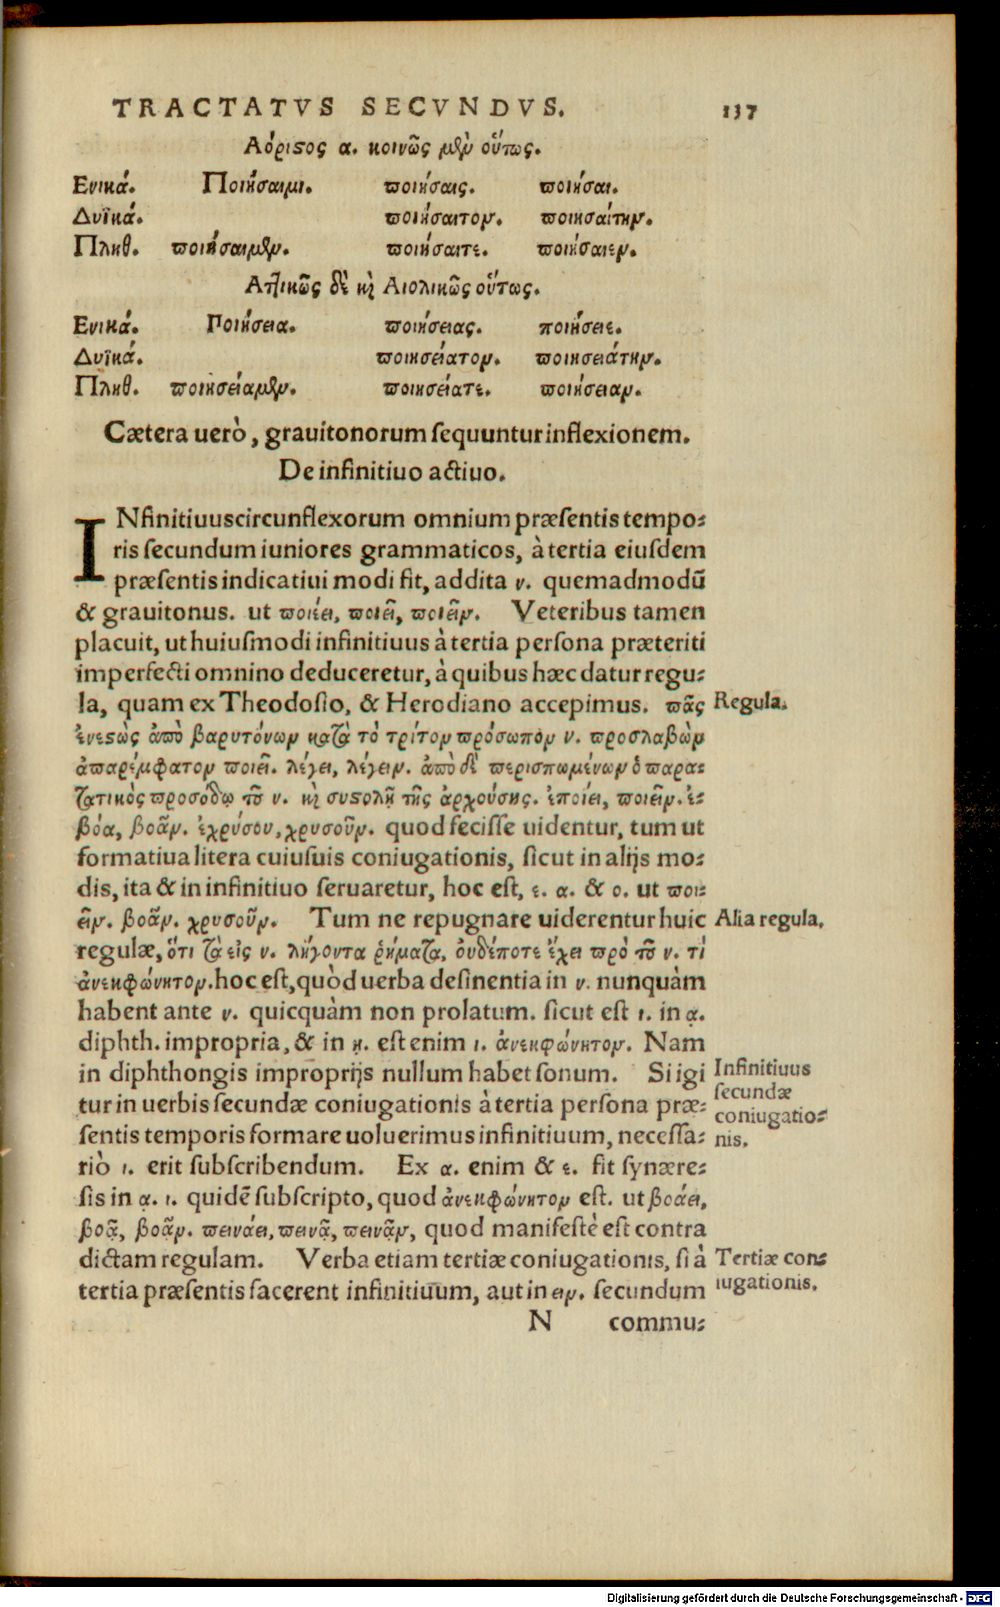 TRACTATVS SECVNDVS. 137
Αόριςος α. κοινῶς μὲν οὕτως.
Ενικά. Ποιήσαιμι. ποιήσαις. ποιήσαι.
Δυϊκά. ποιήσαιτον. ποιησαίτην.
Πληθ. ποιήσαιμεν. ποιήσαιτε. ποιήσαιεν.
Ατ̓ικῶς δὲ κὶ Αιολικῶς οὕτως.
Ενικά. Ποιήσεια. ποιήσειας. ποιήσειε.
Δυϊκά. ποιησείατον. ποιησειάτην.
Πληθ. ποιησείαμεν. ποιησείατε. ποιήσειαν.
Cætera uerò, grauitonorum sequuntur inflexionem.
De infinitiuo actiuo.
INfinitiuus circunflexorum omnium præsentis tempo:
ris secundum iuniores grammaticos, à tertia eiusdem
præsentis indicatiui modi fit, addita ν. quemadmodū
& grauitonus. ut ποιέει, ποιεῖ, ποιεῖν. Veteribus tamen
placuit, ut huiusmodi infinitiuus à tertia persona præteriti
imperfecti omnino deduceretur, à quibus hæc datur regu:
la, quam ex Theodosio, & Herodiano accepimus. πᾶς Regula.
ἐνεςὼς ἀπὸ βαρυτόνων κατὰ τὸ τρίτον πρόσωπον ν. προσλαβὼν
ἀπαρέμφατον ποιεῖ. λέγει, λέγειν. ἀπὸ δὲ περισπωμένων ὁ παρα:
τατικὸς προσόδῳ τοῦ ν. κὶ συςολῇ τῆς ἀρχούσης. ἐποίει, ποιεῖν. ἐ:
βόα, βοᾶν. ἐχρύσου, χρυσοῦν. quod fecisse uidentur, tum ut
formatiua litera cuiusuis coniugationis, sicut in alijs mo:
dis, ita & in infinitiuo seruaretur, hoc est, ε. α. & ο. ut ποι:
εῖν. βοᾶν. χρυσοῦν. Tum ne repugnare uiderentur huic Alia regula.
regulæ, ὅτι τὰ εἰς ν. λήγοντα ῥήματα, οὐδέποτε ἔχει πρὸ τοῦ ν. τὶ
ἀνεκφώνητον. hoc est, quòd uerba desinentia in ν. nunquàm
habent ante ν. quicquàm non prolatum. sicut est ι. in ᾳ.
diphth. impropria, & in ῃ. est enim ι. ἀνεκφώνητον. Nam
in diphthongis improprijs nullum habet sonum. Si igi Infinitiuus
tur in uerbis secundæ coniugationis à tertia persona præ: secundæ
coniugatio:
sentis temporis formare uoluerimus infinitiuum, necessa: nis.
riò ι. erit subscribendum. Ex α. enim & ε. fit synære:
sis in ᾳ. ι. quidē subscripto, quod ἀνεκφώνητον est. ut βοάει,
βοᾷ, βοᾷν. πεινάει, πεινᾷ, πεινᾷν, quod manifestè est contra
dictam regulam. Verba etiam tertiæ coniugationis, si à Tertiæ con:
tertia præsentis facerent infinitiuum, aut in ειν. secundum iugationis.
N commu:
Digitalisierung gefördert durch die Deutsche Forschungsgemeinschaft - DFG